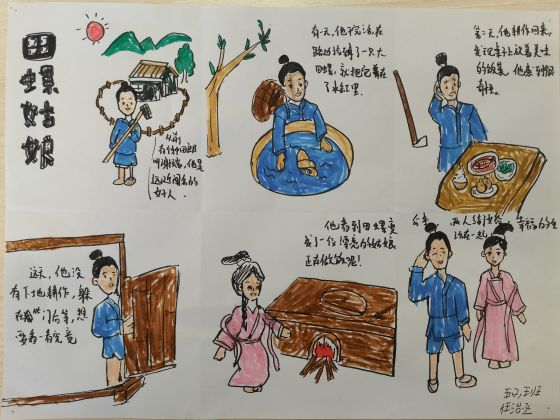 田
螺
姑
娘
从前
有个种田郎
叫谢端,他是
远近闻名的
好人.
有一天,他
在
路边
了一只大
田螺,就把它养在
了水缸里.
第二天,他耕作回来,
发现桌上放着美味
的饭菜.他感到很
奇怪.
这天,他没
有下地耕作,躲
在
门后等,想
要看一看究竟
他看到田螺变
成了一位漂亮的姑娘
正在做饭呢!
两人结
幸福的生
活在一起.
五
班
任浩